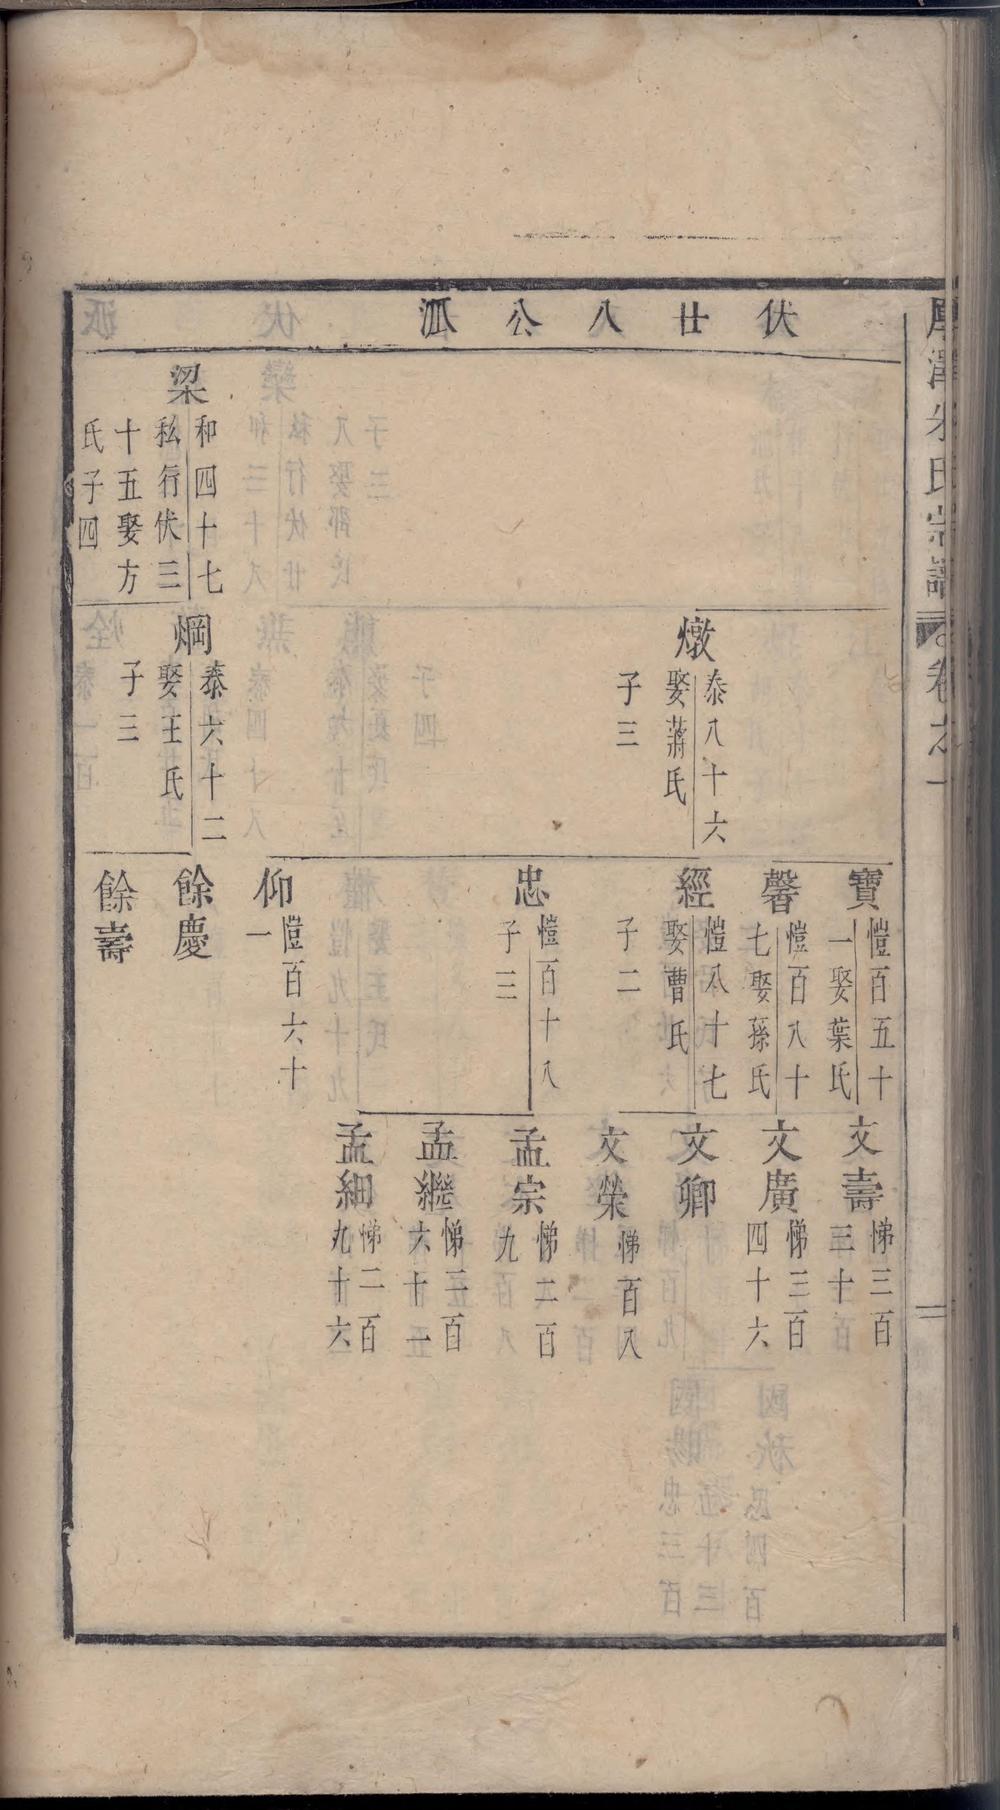 伏廿八公派
梁
和四十七
私行伏三
十五娶方
氏子四
燉
泰八十六
娶蔣氏
子三
焵
泰六十二
娶王氏
子三
寶
愷百五十
一娶葉氏
馨
愷百八十
七娶孫氏
經
愷八十七
娶曹氏
子二
忠
愷百十八
子三
仰
愷百六十
一
餘慶
餘壽
文壽
悌三百
三十
文廣
悌三百
四十六
文卿
文榮
悌百八
孟宗
悌二百
九
孟繼
悌二百
六十一
孟細
悌二百
九十六
氏宗譜
卷六一
二